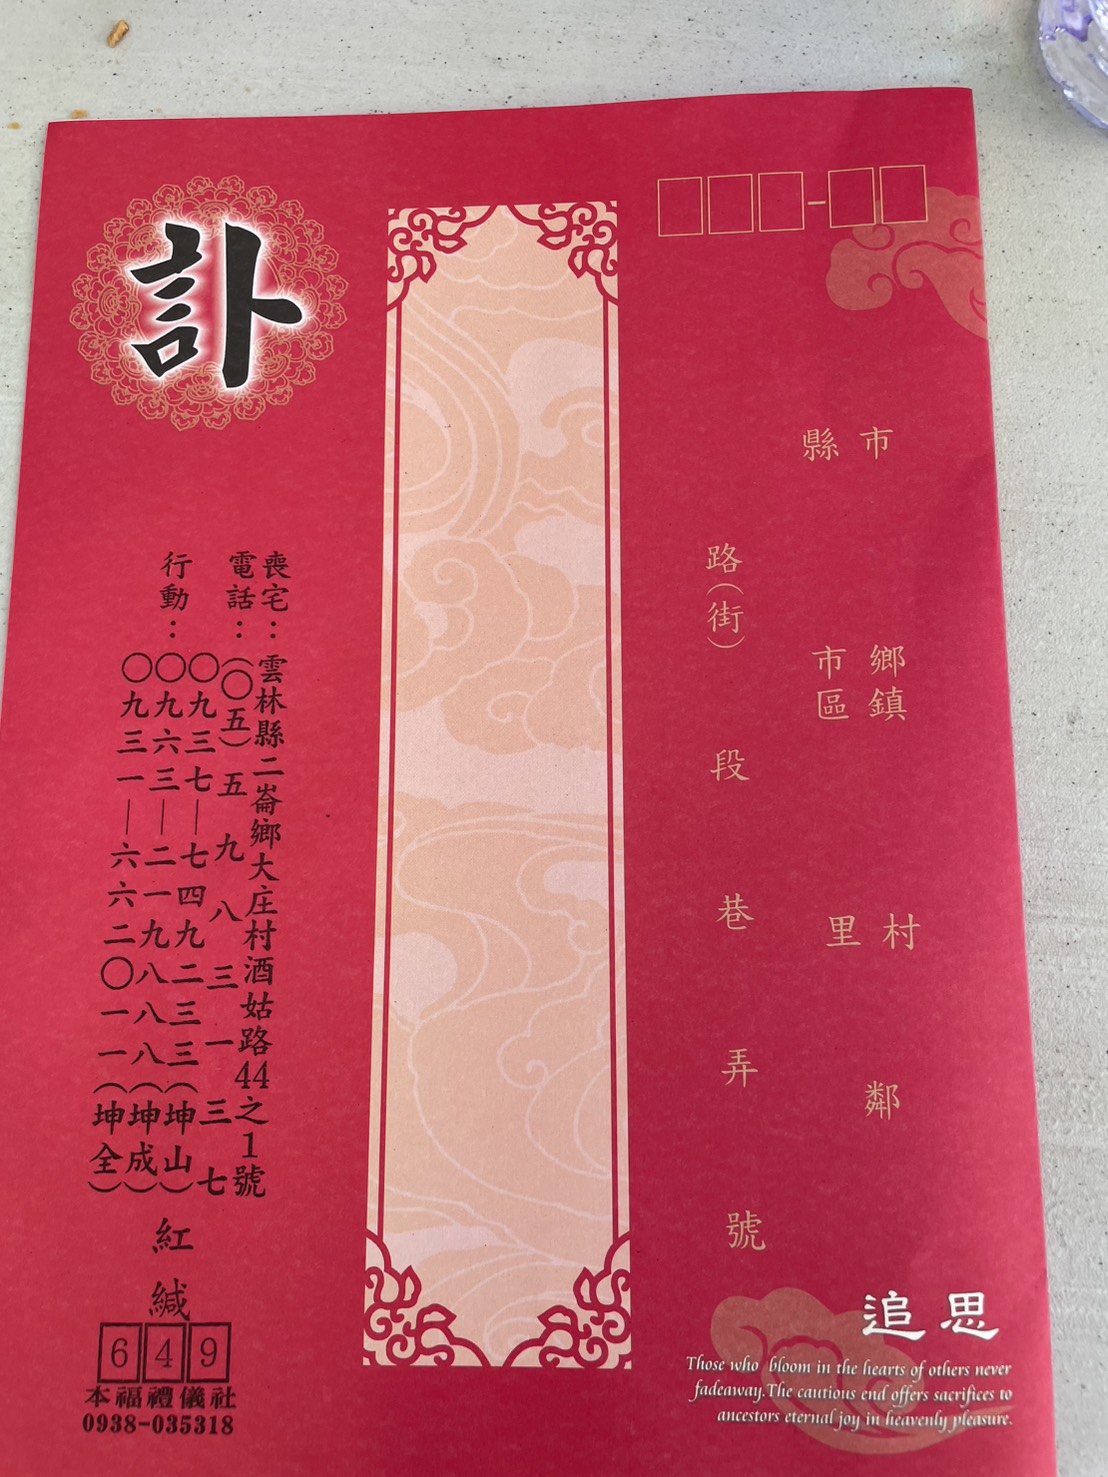 縣市
市區 鄉鎮
里村
鄰
路(街)
段
巷
弄
號
訃
喪宅:雲林縣二崙鄉大庄村酒姑路44之1號
電話:(〇五)五九八三一三七
行動:〇九三七—七四九二三三(坤山)
〇九六三—二一九八八八(坤成)
〇九三一—六六二〇一一(坤全)
紅
緘
649
本福禮儀社
0938-035318
追思
Those who bloom in the hearts of others never
fadeaway.The cautious end offers sacrifices to
ancestors eternal joy in heavenly pleasure.